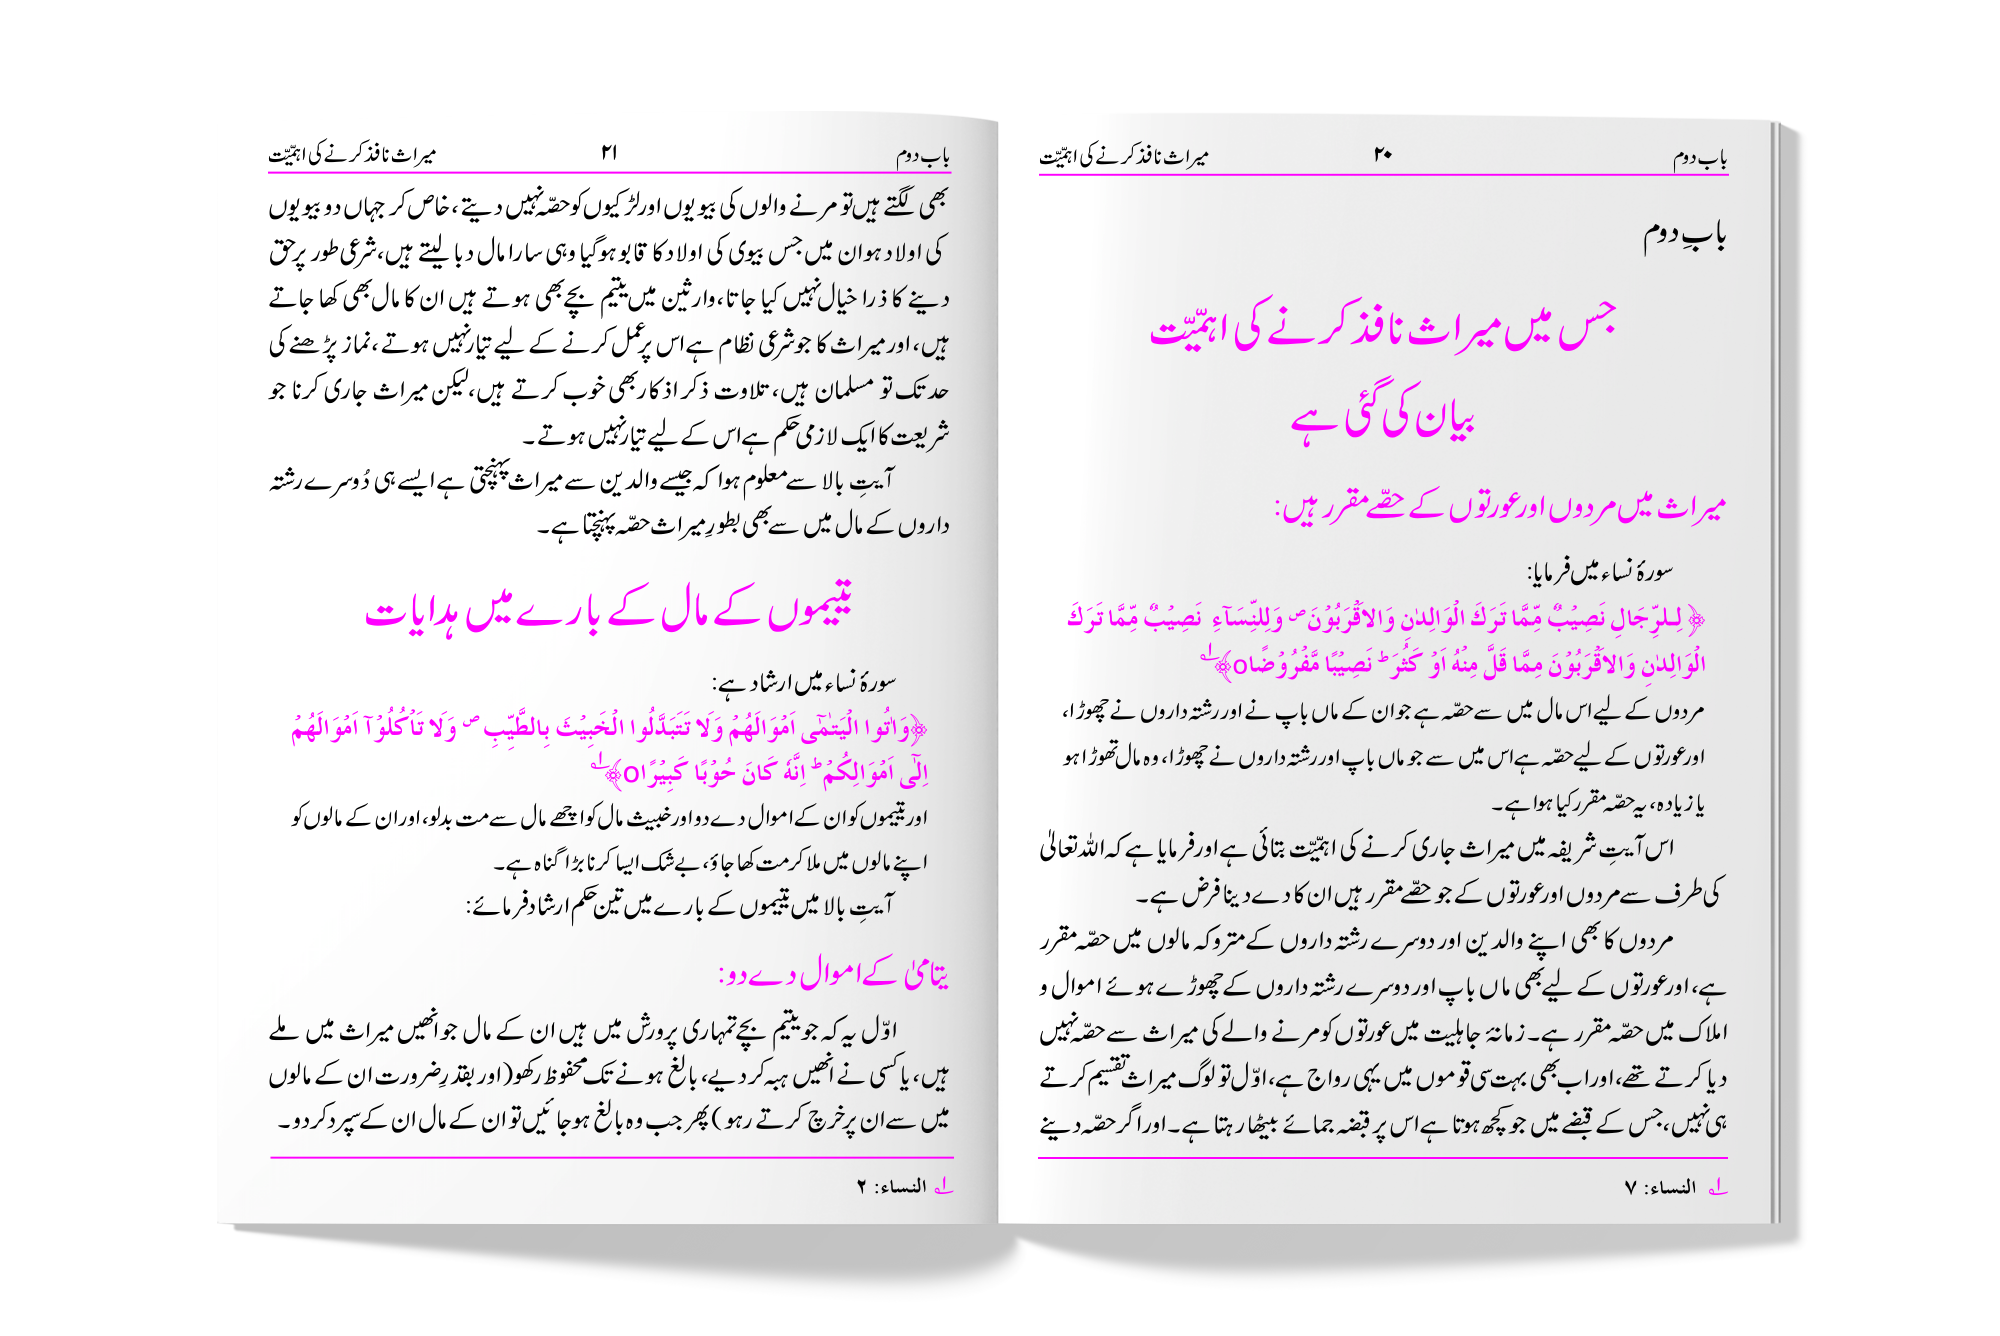 باب دوم ۲۰ میراث نافذ کرنے کی اہمّیّت
بابِ دوم
جس میں میراث نافذ کرنے کی اہمّیّت
بیان کی گئی ہے
میراث میں مردوں اور عورتوں کے حصّے مقرر ہیں:
سورۂ نساء میں فرمایا:
﴿لِلرِّجَالِ نَصِيْبٌ مِّمَّا تَرَكَ الْوَالِدٰنِ وَالاَقْرَبُوْنَ ص وَلِلنِّسَآءِ نَصِيْبٌ مِّمَّا تَرَكَ
الْوَالِدٰنِ وَالاَقْرَبُوْنَ مِمَّا قَلَّ مِنْهُ اَوْ كَثُرَ ط نَصِيْبًا مَّفْرُوْضًاo﴾ ۱؎
مردوں کے لیے اس مال میں سے حصّہ ہے جو ان کے ماں باپ نے اور رشتہ داروں نے چھوڑا،
اور عورتوں کے لیے حصّہ ہے اس میں سے جو ماں باپ اور رشتہ داروں نے چھوڑا، وہ مال تھوڑا ہو
یا زیادہ، یہ حصّہ مقرر کیا ہوا ہے۔
اس آیتِ شریفہ میں میراث جاری کرنے کی اہمّیّت بتائی ہے اور فرمایا ہے کہ اللہ تعالیٰ
کی طرف سے مردوں اور عورتوں کے جو حصّے مقرر ہیں ان کا دے دینا فرض ہے۔
مردوں کا بھی اپنے والدین اور دوسرے رشتہ داروں کے متروکہ مالوں میں حصّہ مقرر
ہے، اور عورتوں کے لیے بھی ماں باپ اور دوسرے رشتہ داروں کے چھوڑے ہوئے اموال و
املاک میں حصّہ مقرر ہے۔ زمانۂ جاہلیت میں عورتوں کو مرنے والے کی میراث سے حصّہ نہیں
دیا کرتے تھے، اور اب بھی بہت سی قوموں میں یہی رواج ہے، اوّل تو لوگ میراث تقسیم کرتے
ہی نہیں، جس کے قبضے میں جو کچھ ہوتا ہے اس پر قبضہ جمائے بیٹھا رہتا ہے۔ اور اگر حصّہ دینے
۱؎ النساء: ۷
باب دوم ۲۱ میراث نافذ کرنے کی اہمّیّت
بھی لگتے ہیں تو مرنے والوں کی بیویوں اور لڑکیوں کو حصّہ نہیں دیتے، خاص کر جہاں دو بیویوں
کی اولاد ہو ان میں جس بیوی کی اولاد کا قابو ہوگیا وہی سارا مال دبا لیتے ہیں، شرعی طور پر حق
دینے کا ذرا خیال نہیں کیا جاتا، وارثین میں یتیم بچے بھی ہوتے ہیں ان کا مال بھی کھا جاتے
ہیں، اور میراث کا جو شرعی نظام ہے اس پر عمل کرنے کے لیے تیار نہیں ہوتے، نماز پڑھنے کی
حد تک تو مسلمان ہیں، تلاوت ذکر اذکار بھی خوب کرتے ہیں، لیکن میراث جاری کرنا جو
شریعت کا ایک لازمی حکم ہے اس کے لیے تیار نہیں ہوتے۔
آیتِ بالا سے معلوم ہوا کہ جیسے والدین سے میراث پہنچتی ہے ایسے ہی دُوسرے رشتہ
داروں کے مال میں سے بھی بطورِ میراث حصّہ پہنچتا ہے۔
یتیموں کے مال کے بارے میں ہدایات
سورۂ نساء میں ارشاد ہے:
﴿وَاٰتُوا الْيَتٰمٰٓى اَمْوَالَهُمْ وَلَا تَتَبَدَّلُوا الْخَبِيْثَ بِالطَّيِّبِ ص وَلَا تَاْكُلُوْآ اَمْوَالَهُمْ
اِلٰٓى اَمْوَالِكُمْ ط اِنَّهٗ كَانَ حُوْبًا كَبِيْرًاo﴾ ۱؎
اور یتیموں کو ان کے اموال دے دو اور خبیث مال کو اچھے مال سے مت بدلو، اور ان کے مالوں کو
اپنے مالوں میں ملا کر مت کھا جاؤ، بے شک ایسا کرنا بڑا گناہ ہے۔
آیتِ بالا میں یتیموں کے بارے میں تین حکم ارشاد فرمائے:
یتامیٰ کے اموال دے دو:
اوّل یہ کہ جو یتیم بچے تمہاری پرورش میں ہیں ان کے مال جو انھیں میراث میں ملے
ہیں، یا کسی نے انھیں ہبہ کر دیے، بالغ ہونے تک محفوظ رکھو (اور بقدرِ ضرورت ان کے مالوں
میں سے ان پر خرچ کرتے رہو) پھر جب وہ بالغ ہوجائیں تو ان کے مال ان کے سپرد کر دو۔
۱؎ النساء: ۲